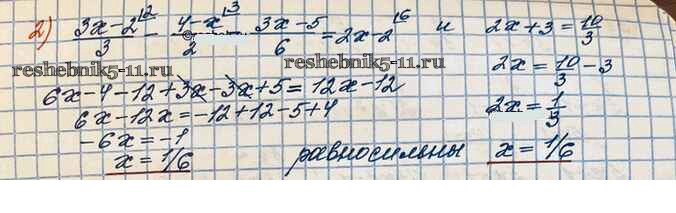 2) (3x-2)/3 ¹² - (4-x)/2 ¹³ - (3x-5)/6 = 2x-2 ¹⁶ и 2x+3=10/3
reshebnik5-11.ru reshebnik5-11.ru
2x=10/3-3
6x-4-12+3x-3x+5=12x-12
2x=1/3
6x-12x=-12+12-5+4
-6x=-1
x=1/6 равносильны x=1/6